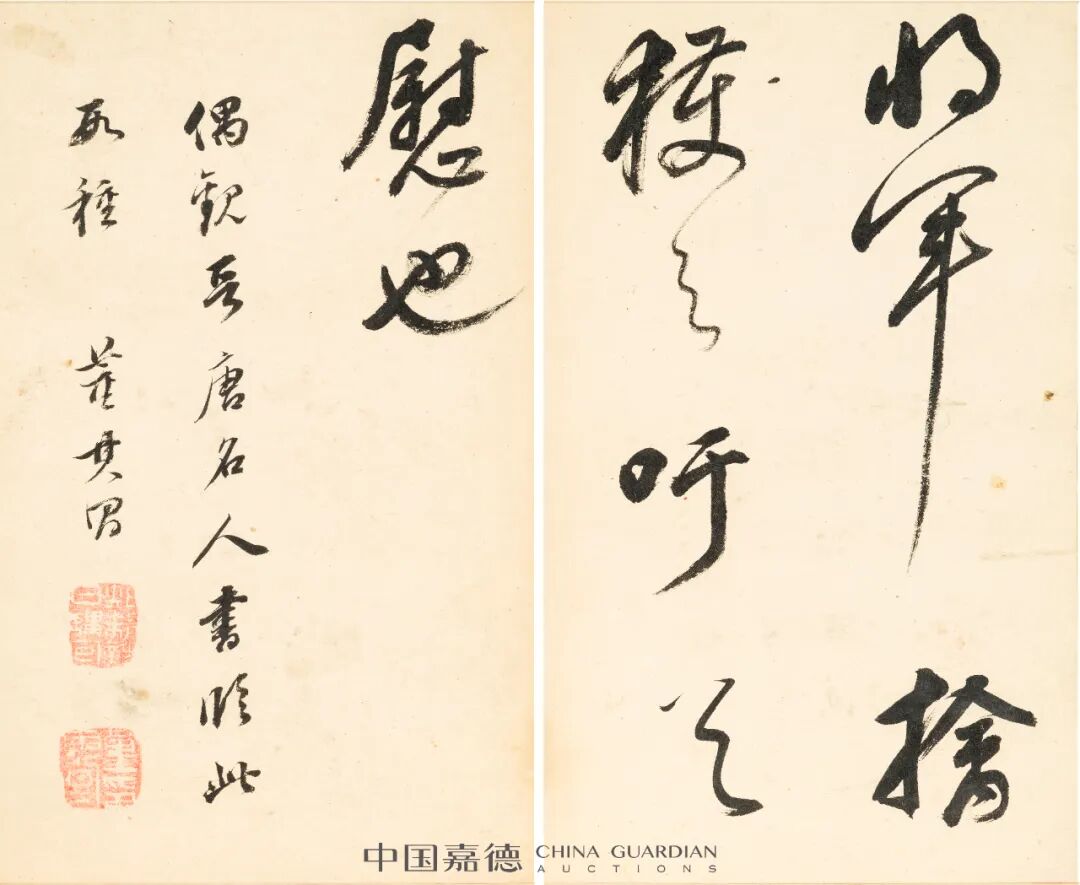 将軍擒
獲之吁足
慰也
偶觀晉唐名人書臨此
數種 董其昌
中国嘉德 CHINA GUARDIAN
AUCTIONS